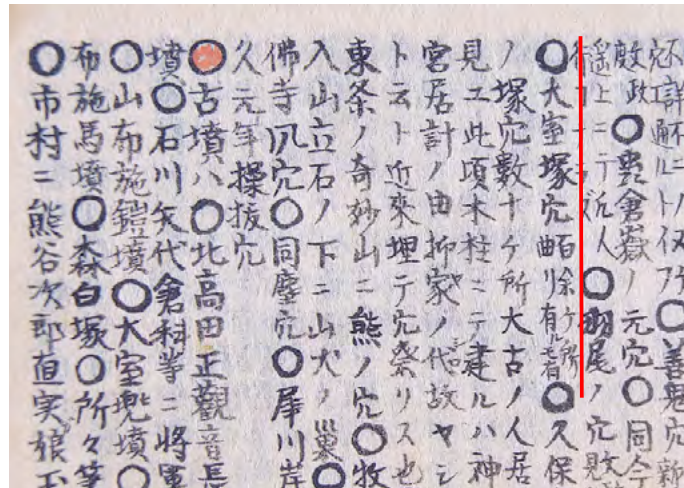 究詳不ニ
政〇雲倉嶽ノ元穴〇同今
遥上ニテ近人〇羽尾ノ穴
〇大室塚穴陌余ケ所リ有ル者〇久保
ノ塚穴数十ケ所大古ノ人居
見エ此頃木柱ニテ建ルハ神
宮居計ノ由抑家ノ代故ヤシ
ト云ト近来埋テ穴祭リス也
東条ノ奇妙山ニ熊ノ穴〇牧
入山立石ノ下ニ山犬ノ巣〇
佛寺風穴〇同塵穴〇犀川岸
久元年操抜穴
〇古墳ハ〇北高田正觀音長
墳〇石川矢代倉科等ニ将軍
〇山布施鎧墳〇大室兜墳〇
布施馬墳〇森白塚〇所々等
〇市村ニ熊谷次郎直実娘玉